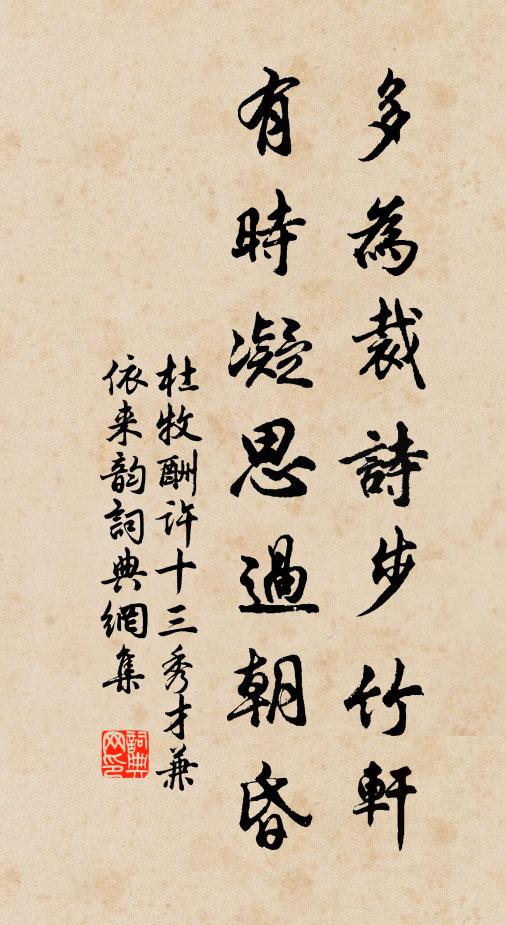 多為裁詩步竹軒
有時凝思過朝昏
杜牧酬许十三秀才兼
依来韵詞典網集
詞典
网印